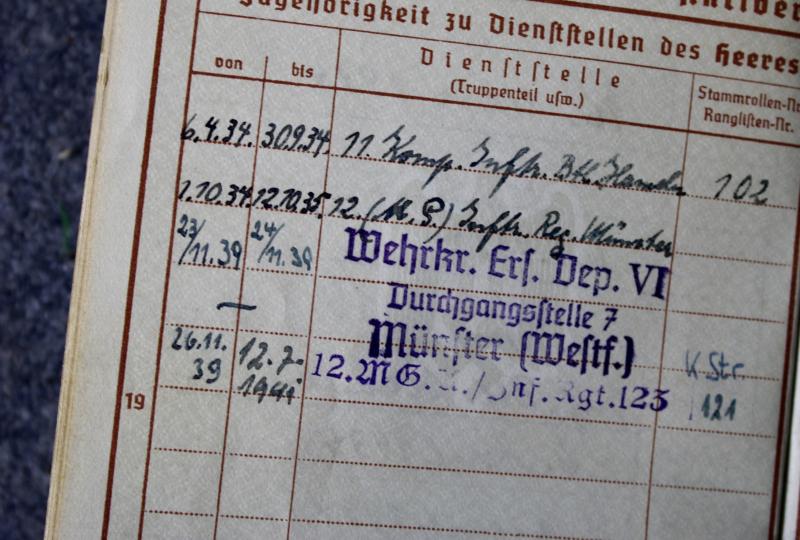 zu Dienststellen des Heeres
von
bis
Dienststelle
(Truppenteil usw.)
Stammrollen-Nr.
Ranglisten-Nr.
6.4.34. 30.9.34. 11 Komp. Inftr. Btl. 102
1.10.34 12.10.35. 12. (M.G.) Inftr. Reg. Münster
23/11.39 24/11.39 Wehrkr. Ers. Dep. VI
Durchgangsstelle 7
Münster (Westf.)
26.11.39 12.7.1941 12. M.G.K./Inf. Rgt. 123 K Str. 121
19